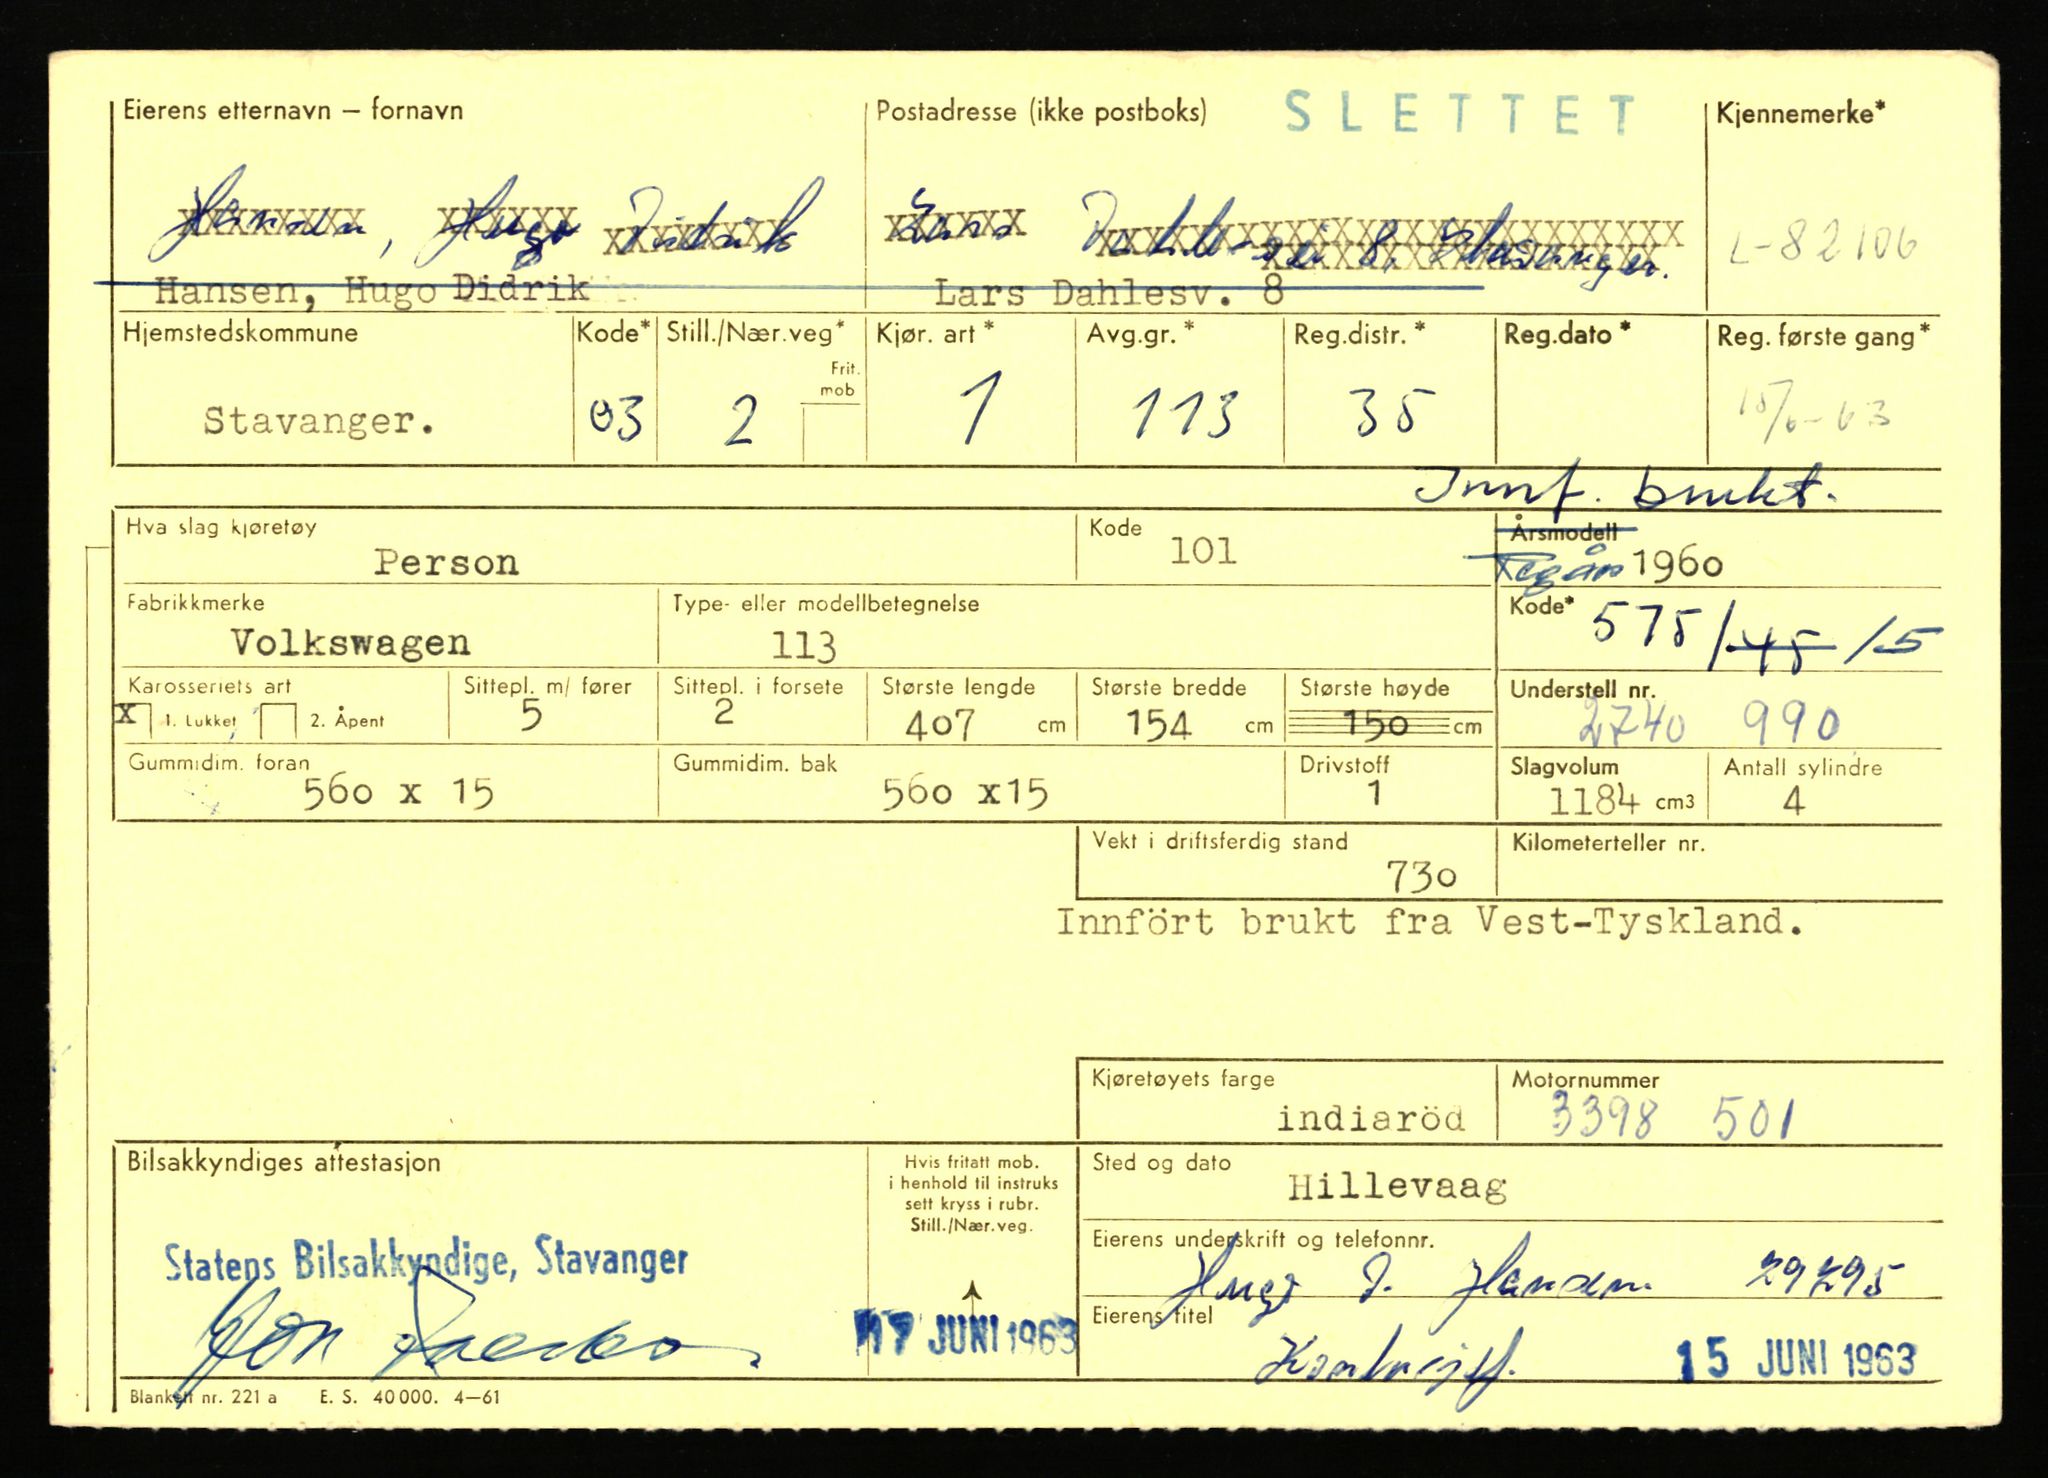 Eierens etternavn – fornavn Postadresse (ikke postboks) SLETTET Kjennemerke*
Hansen, Hugo Didrik Lars Dahles vei 8, Stavanger. L-82106
Hansen, Hugo Didrik Lars Dahlesv. 8
Hjemstedskommune Kode* Still./Nær.veg* Kjør. art* Avg.gr.* Reg.distr.* Reg.dato* Reg. første gang*
Frit. mob
Stavanger. 03 2 1 113 35 15/6-63
Innf. brukt.
Hva slag kjøretøy Kode Årsmodell
Person 101 Reg.år 1960
Fabrikkmerke Type- eller modellbetegnelse Kode*
Volkswagen 113 575/45/5
Karosseriets art Sittepl. m/ fører Sittepl. i forsete Største lengde Største bredde Største høyde Understell nr.
X 1. Lukket 2. Åpent 5 2 407 cm 154 cm 150 cm 2740 990
Gummidim. foran Gummidim. bak Drivstoff Slagvolum Antall sylindre
560 x 15 560 x15 1 1184 cm3 4
Vekt i driftsferdig stand Kilometerteller nr.
730
Innfört brukt fra Vest-Tyskland.
Kjøretøyets farge Motornummer
indiaröd 3398 501
Bilsakkyndiges attestasjon Hvis fritatt mob. Sted og dato
i henhold til instruks Hillevaag
sett kryss i rubr.
Still./Nær.veg.
Eierens underskrift og telefonnr.
Statens Bilsakkyndige, Stavanger Hugo D. Hansen 29295
Eierens titel
17 JUNI 1963 15 JUNI 1963
Blankett nr. 221 a E. S. 40000. 4–61